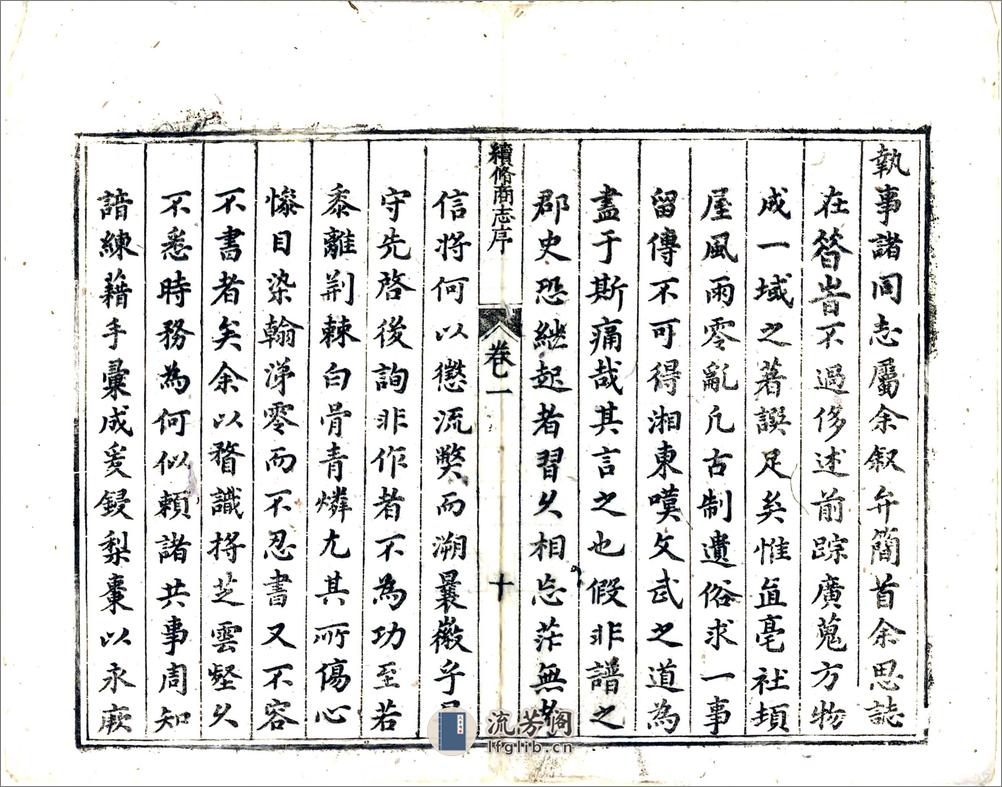 執事諸同志屬余叙弁簡首余思誌
在昝旹不過侈述前踪廣蒐方物
成一域之著譔足矣惟亳社頃
屋風雨零亂凢古制遺俗求一事
留傳不可得湘東嘆文武之道為
盡于斯痛哉其言之也假非譜之
郡史恐継起者習久相忘茫無考
續修商志序
卷一
十
信將何以懲流獘而溯曩徽乎
守先啓後詢非作者不為功至若
黍離荆棘白骨青燐尢其所傷心
慘目染翰涕零而不忍書又不容
不書者矣余以瞀識將芝雲壑久
不悉時務為何似賴諸共事周知
諳練藉手彙成爰鋟梨棗以永厥
流芳阁
lfglib.cn